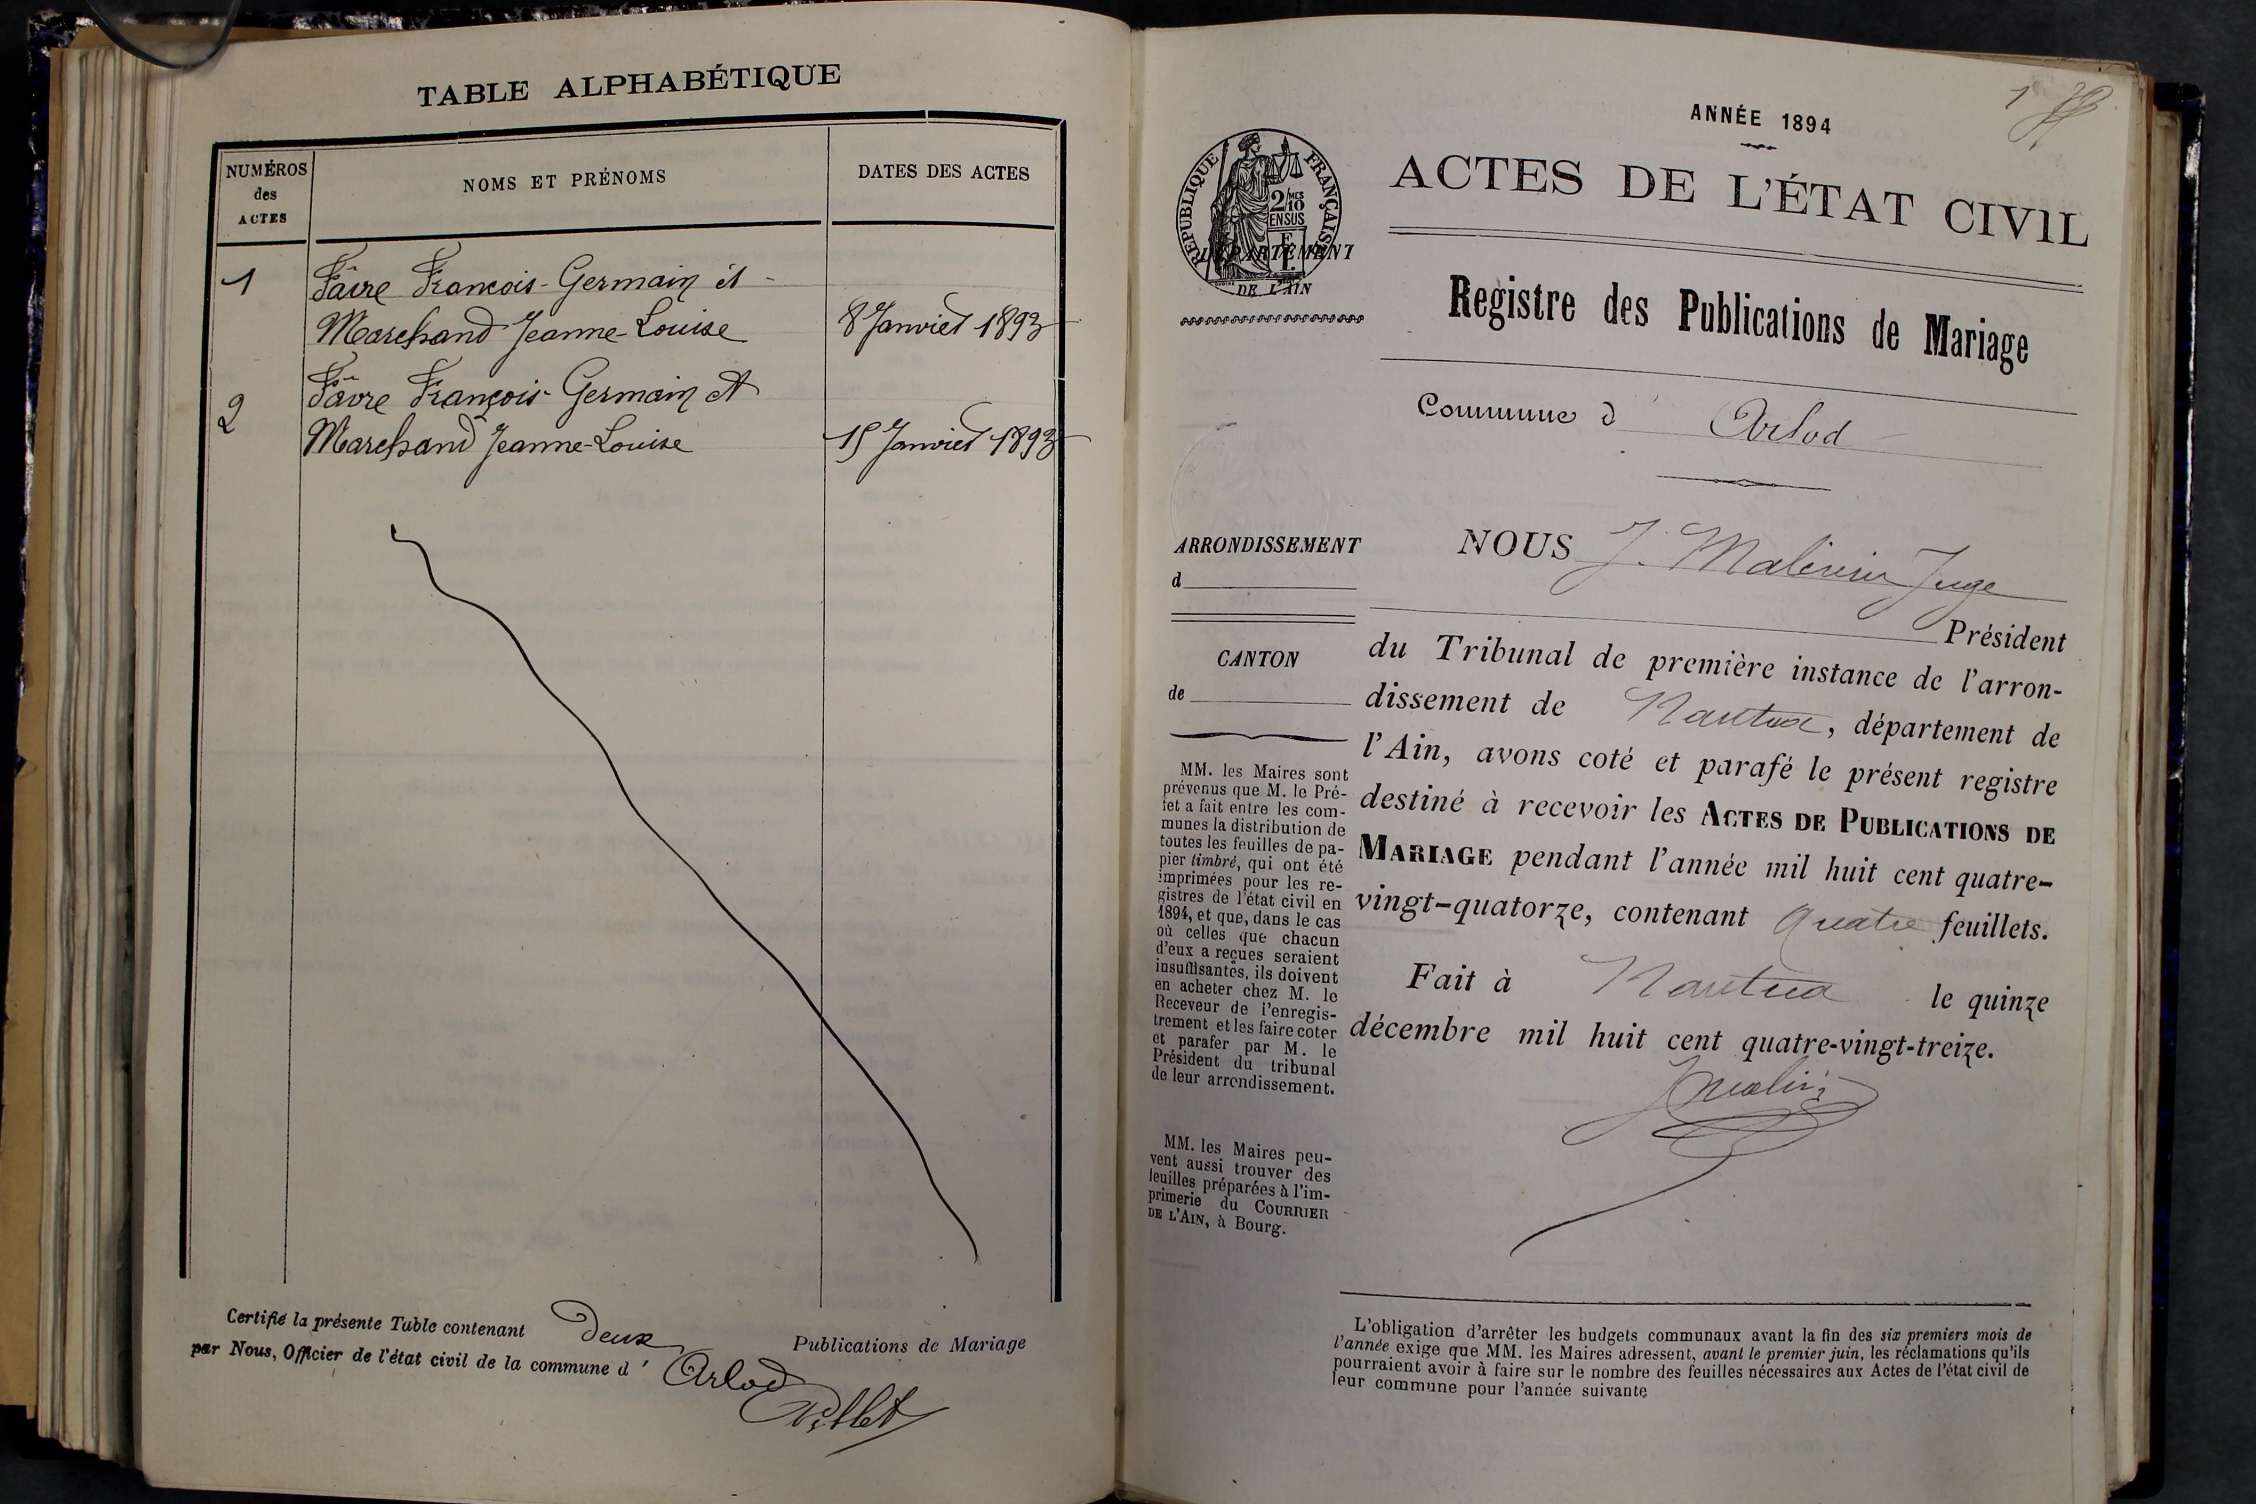 TABLE ALPHABÉTIQUE
NUMÉROS
des
ACTES
NOMS ET PRÉNOMS
DATES DES ACTES
1
Fâvre François-Germain et
Marchand Jeanne-Louise
8 Janvier 1893
2
Fâvre François-Germain et
Marchand Jeanne-Louise
15 Janvier 1893
Certifié la présente Table contenant deux Publications de Mariage
par Nous, Officier de l'état civil de la commune d' Arlod
ANNÉE 1894
1
ACTES DE L'ÉTAT CIVIL
RÉPUBLIQUE FRANÇAISE
2/10 MES
EN SUS
DÉPARTEMENT
DE L'AIN
Registre des Publications de Mariage
Commune d' Arlod
ARRONDISSEMENT
d
CANTON
de
MM. les Maires sont
prévenus que M. le Pré-
fet a fait entre les com-
munes la distribution de
toutes les feuilles de pa-
pier timbré, qui ont été
imprimées pour les re-
gistres de l'état civil en
1894, et que, dans le cas
où celles que chacun
d'eux a reçues seraient
insuffisantes, ils doivent
en acheter chez M. le
Receveur de l'enregis-
trement et les faire coter
et parafer par M. le
Président du tribunal
de leur arrondissement.
MM. les Maires peu-
vent aussi trouver des
feuilles préparées à l'im-
primerie du COURRIER
DE L'AIN, à Bourg.
NOUS J. Juge
Président
du Tribunal de première instance de l'arron-
dissement de Nantua, département de
l'Ain, avons coté et parafé le présent registre
destiné à recevoir les ACTES DE PUBLICATIONS DE
MARIAGE pendant l'année mil huit cent quatre-
vingt-quatorze, contenant quatre feuillets.
Fait à Nantua le quinze
décembre mil huit cent quatre-vingt-treize.
L'obligation d'arrêter les budgets communaux avant la fin des six premiers mois de
l'année exige que MM. les Maires adressent, avant le premier juin, les réclamations qu'ils
pourraient avoir à faire sur le nombre des feuilles nécessaires aux Actes de l'état civil de
leur commune pour l'année suivante